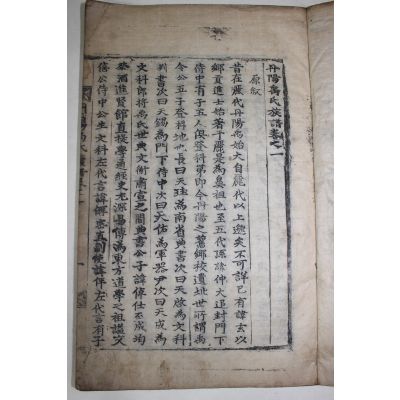 丹陽禹氏族譜卷之一
原叙
昔在麗代丹陽禹始大自麗代以上邈矣不可詳已有諱玄以
鄉貢進士始著于麗是爲鼻祖也至五代孫諱仲大追封門下
侍中有子五人俱登科第即今丹陽之舊鄉校遺址世所謂禹
令公五子登科地也長曰天珪爲南省典書次曰天啓爲文科
判書次曰天錫爲門下侍中次曰天佑爲軍器尹次曰天成爲
文科郎將爲世典文衡肅宣之間典書公子諱倬仕至成均
祭酒進賢館直提學通經史尤深易傳爲東方道學之祖謚文
僖公侍中公生文科左代言諱 密直副使諱伴左代言有子